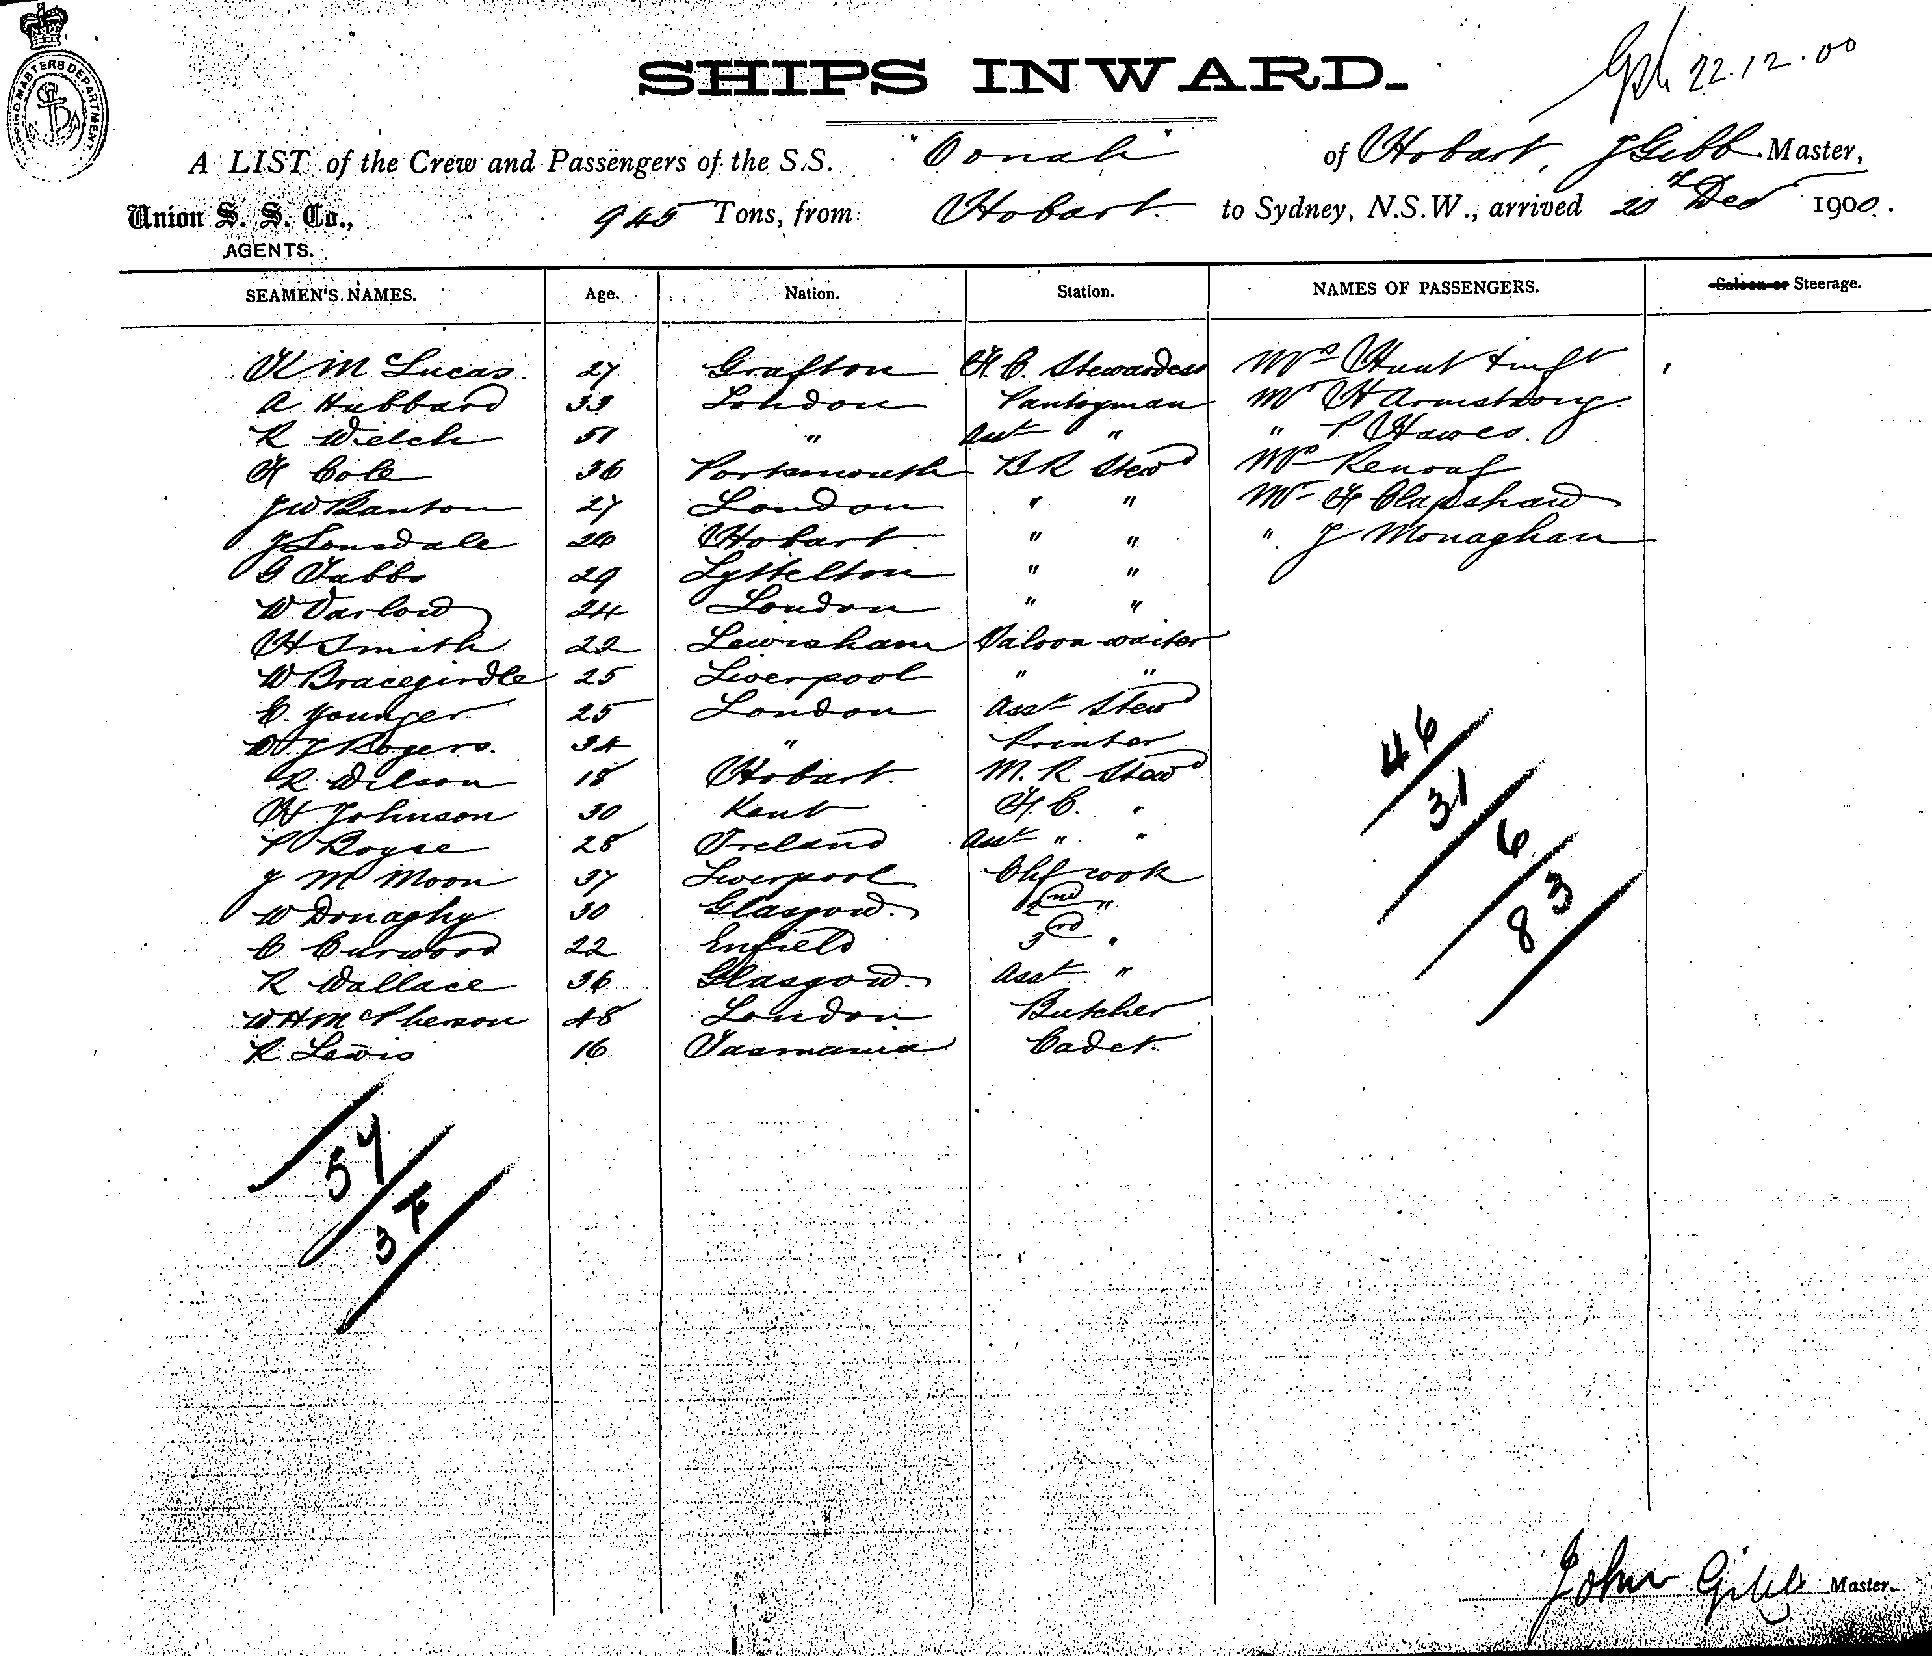 SHIPS INWARD.
22.12.00
HARBOUR MASTERS DEPARTMENT
A LIST of the Crew and Passengers of the S.S. "Oonah" of Hobart, J Gibb Master,
Union S. S. Co., 945 Tons, from Hobart to Sydney, N.S.W., arrived 20th Dec 1900.
AGENTS.
SEAMEN'S NAMES. Age. Nation. Station. NAMES OF PASSENGERS. Saloon or Steerage.
K M Lucas 27 Grafton F. C. Stewardess Mrs Hunt & inft
A Hubbard 33 London Pantryman Mr H Armstrong
R Welch 51 " Asst " " P Hawes
F Cole 36 Portsmouth B R Stewd Mrs Renouf
J W Banton 27 London " " Mr F Clapshaw
J Lonsdale 26 Hobart " " " J Monaghan
G Tabbs 29 Lyttelton " "
W Varlow 24 London " "
H Smith 22 Lewisham Saloon waiter
W Bracegirdle 25 Liverpool " "
C. Younger 25 London Asst Stewd
W J Rogers. 34 " Printer
R Wilson 18 Hobart M. R Stewd
H Johnson 30 Kent F. C. "
P Boyce 28 Ireland Asst " "
J M Moon 37 Liverpool Chf cook
W Donaghy 30 Glasgow 2nd "
C Curwood 22 Enfield 3rd "
R Wallace 36 Glasgow Asst "
W H McPherson 48 London Butcher
R Lewis 16 Tasmania Cadet
46
31
6
83
57
37
John Gibb Master.